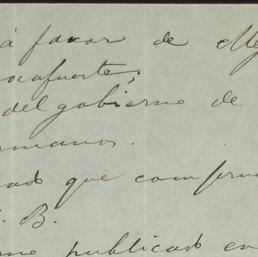 á favor de Mej
ocafuerte,
del gobierno de
rmanos.
ado que comprue
. B.
mo publicado en